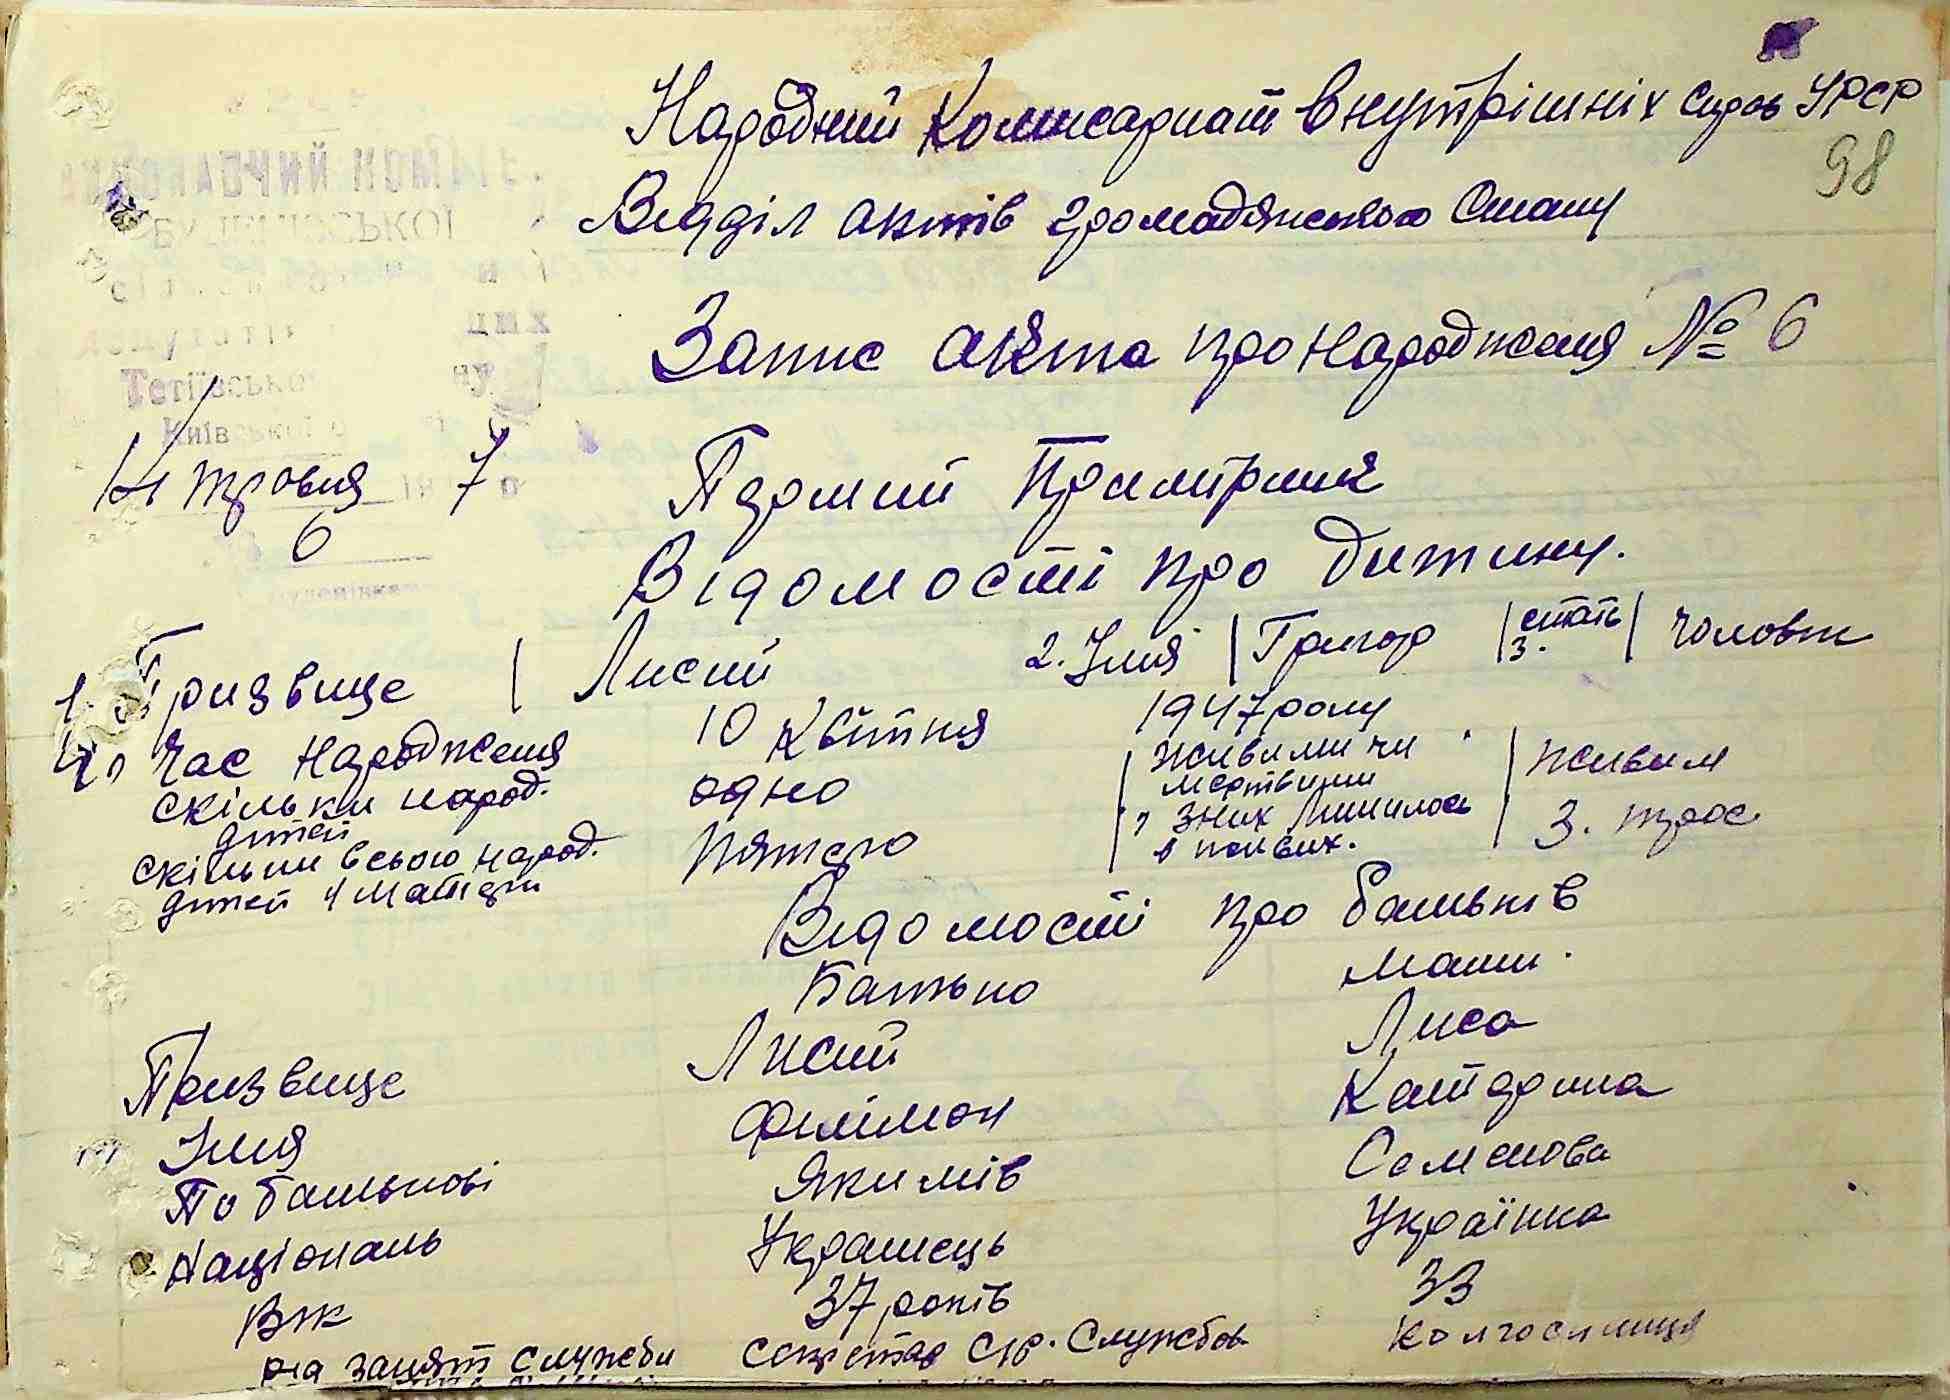 Народний Комисариат Внутрішніх справ УРСР
98
Відділ актів громадянського Стану
ВИКОНАВЧИЙ КОМІТЕТ
Запис акта про народження № 6
Тетіївсько
Київської о
14 травня 7
6
Перший Примірник
Відомості про дитину.
1. Призвище | Лисий 2. Імя | Григор | 3. стать | Чоловік
4. Час народження 10 Квітня 1947 року
скільки народ. дітей одно | живими чи мертвими | живим
скільки всього народ. дітей у матери пятеро | з них лишилось в живих. | 3. троє
Відомості про батьків
Батько мати
Призвище Лисий Лиса
Імя Филімон Катерина
По батькові Якимів Семенова
Національ Украінець Українка
Вік 37 років 33
рід занят служби секретар с/р. Службов Колгоспниця